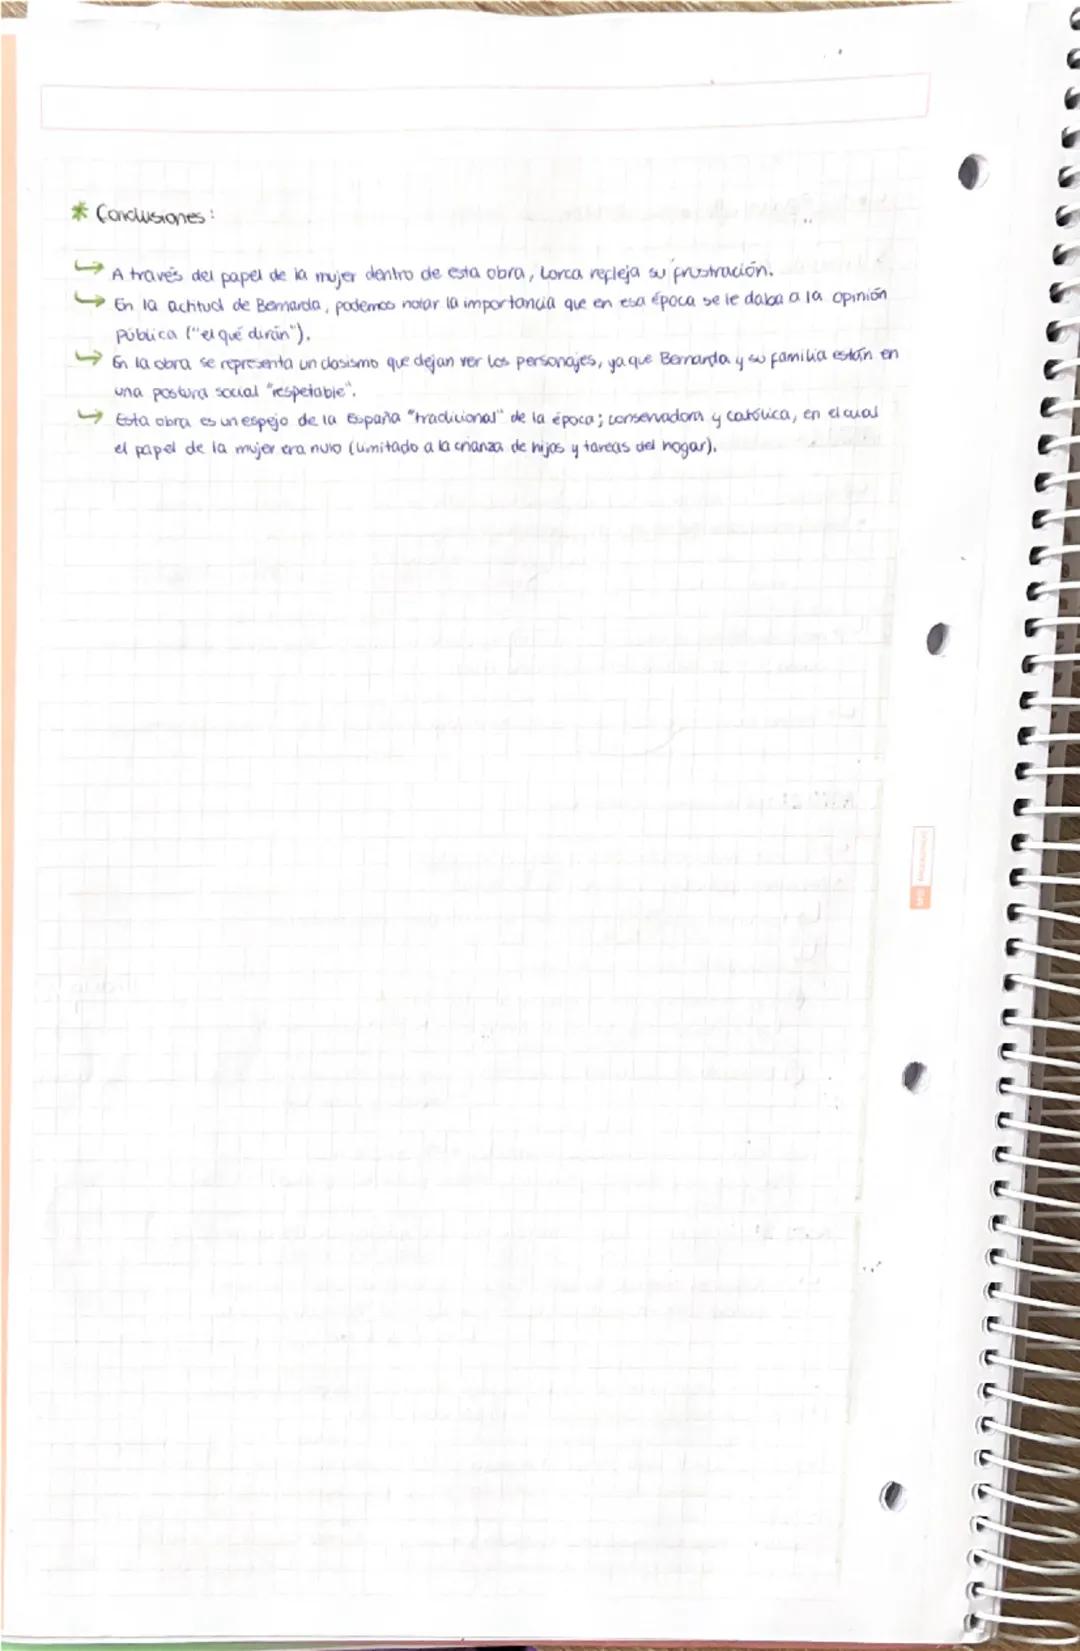 * Conclusiones:
↪ A través del papel de la mujer dentro de esta obra, Lorca refleja su frustración.
↪ En la actitud de Bernarda, podemos notar la importancia que en esa época se le daba a la opinión
pública ("el qué dirán").
↪ En la obra se representa un clasismo que dejan ver los personajes, ya que Bernarda y su familia están en
una postura social "respetable".
↪ Esta obra es un espejo de la España "tradicional" de la época; conservadora y católica, en el cual
el papel de la mujer era nulo (limitado a la crianza de hijos y tareas del hogar).